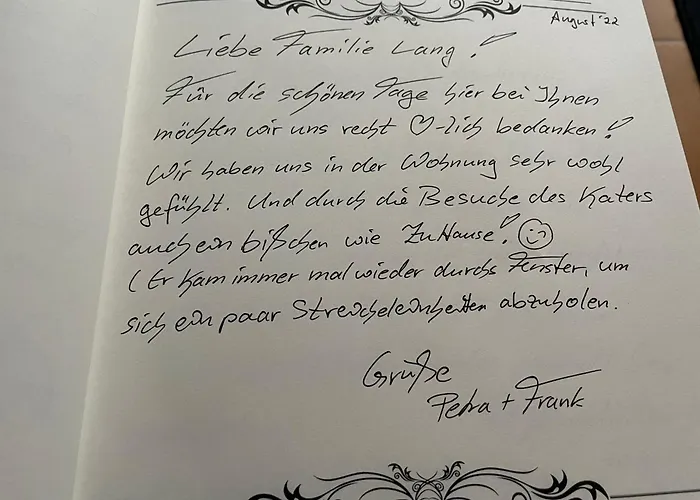 August '22
Liebe Familie Lang!
Für die schönen Tage hier bei Ihnen
möchten wir uns recht ♡-lich bedanken!
Wir haben uns in der Wohnung sehr wohl
gefühlt. Und durch die Besuche des Katers
auch ein bißchen wie ZuHause! ☺
(Er kam immer mal wieder durchs Fenster, um
sich ein paar Streicheleinheiten abzuholen.
Grüße
Petra + Frank